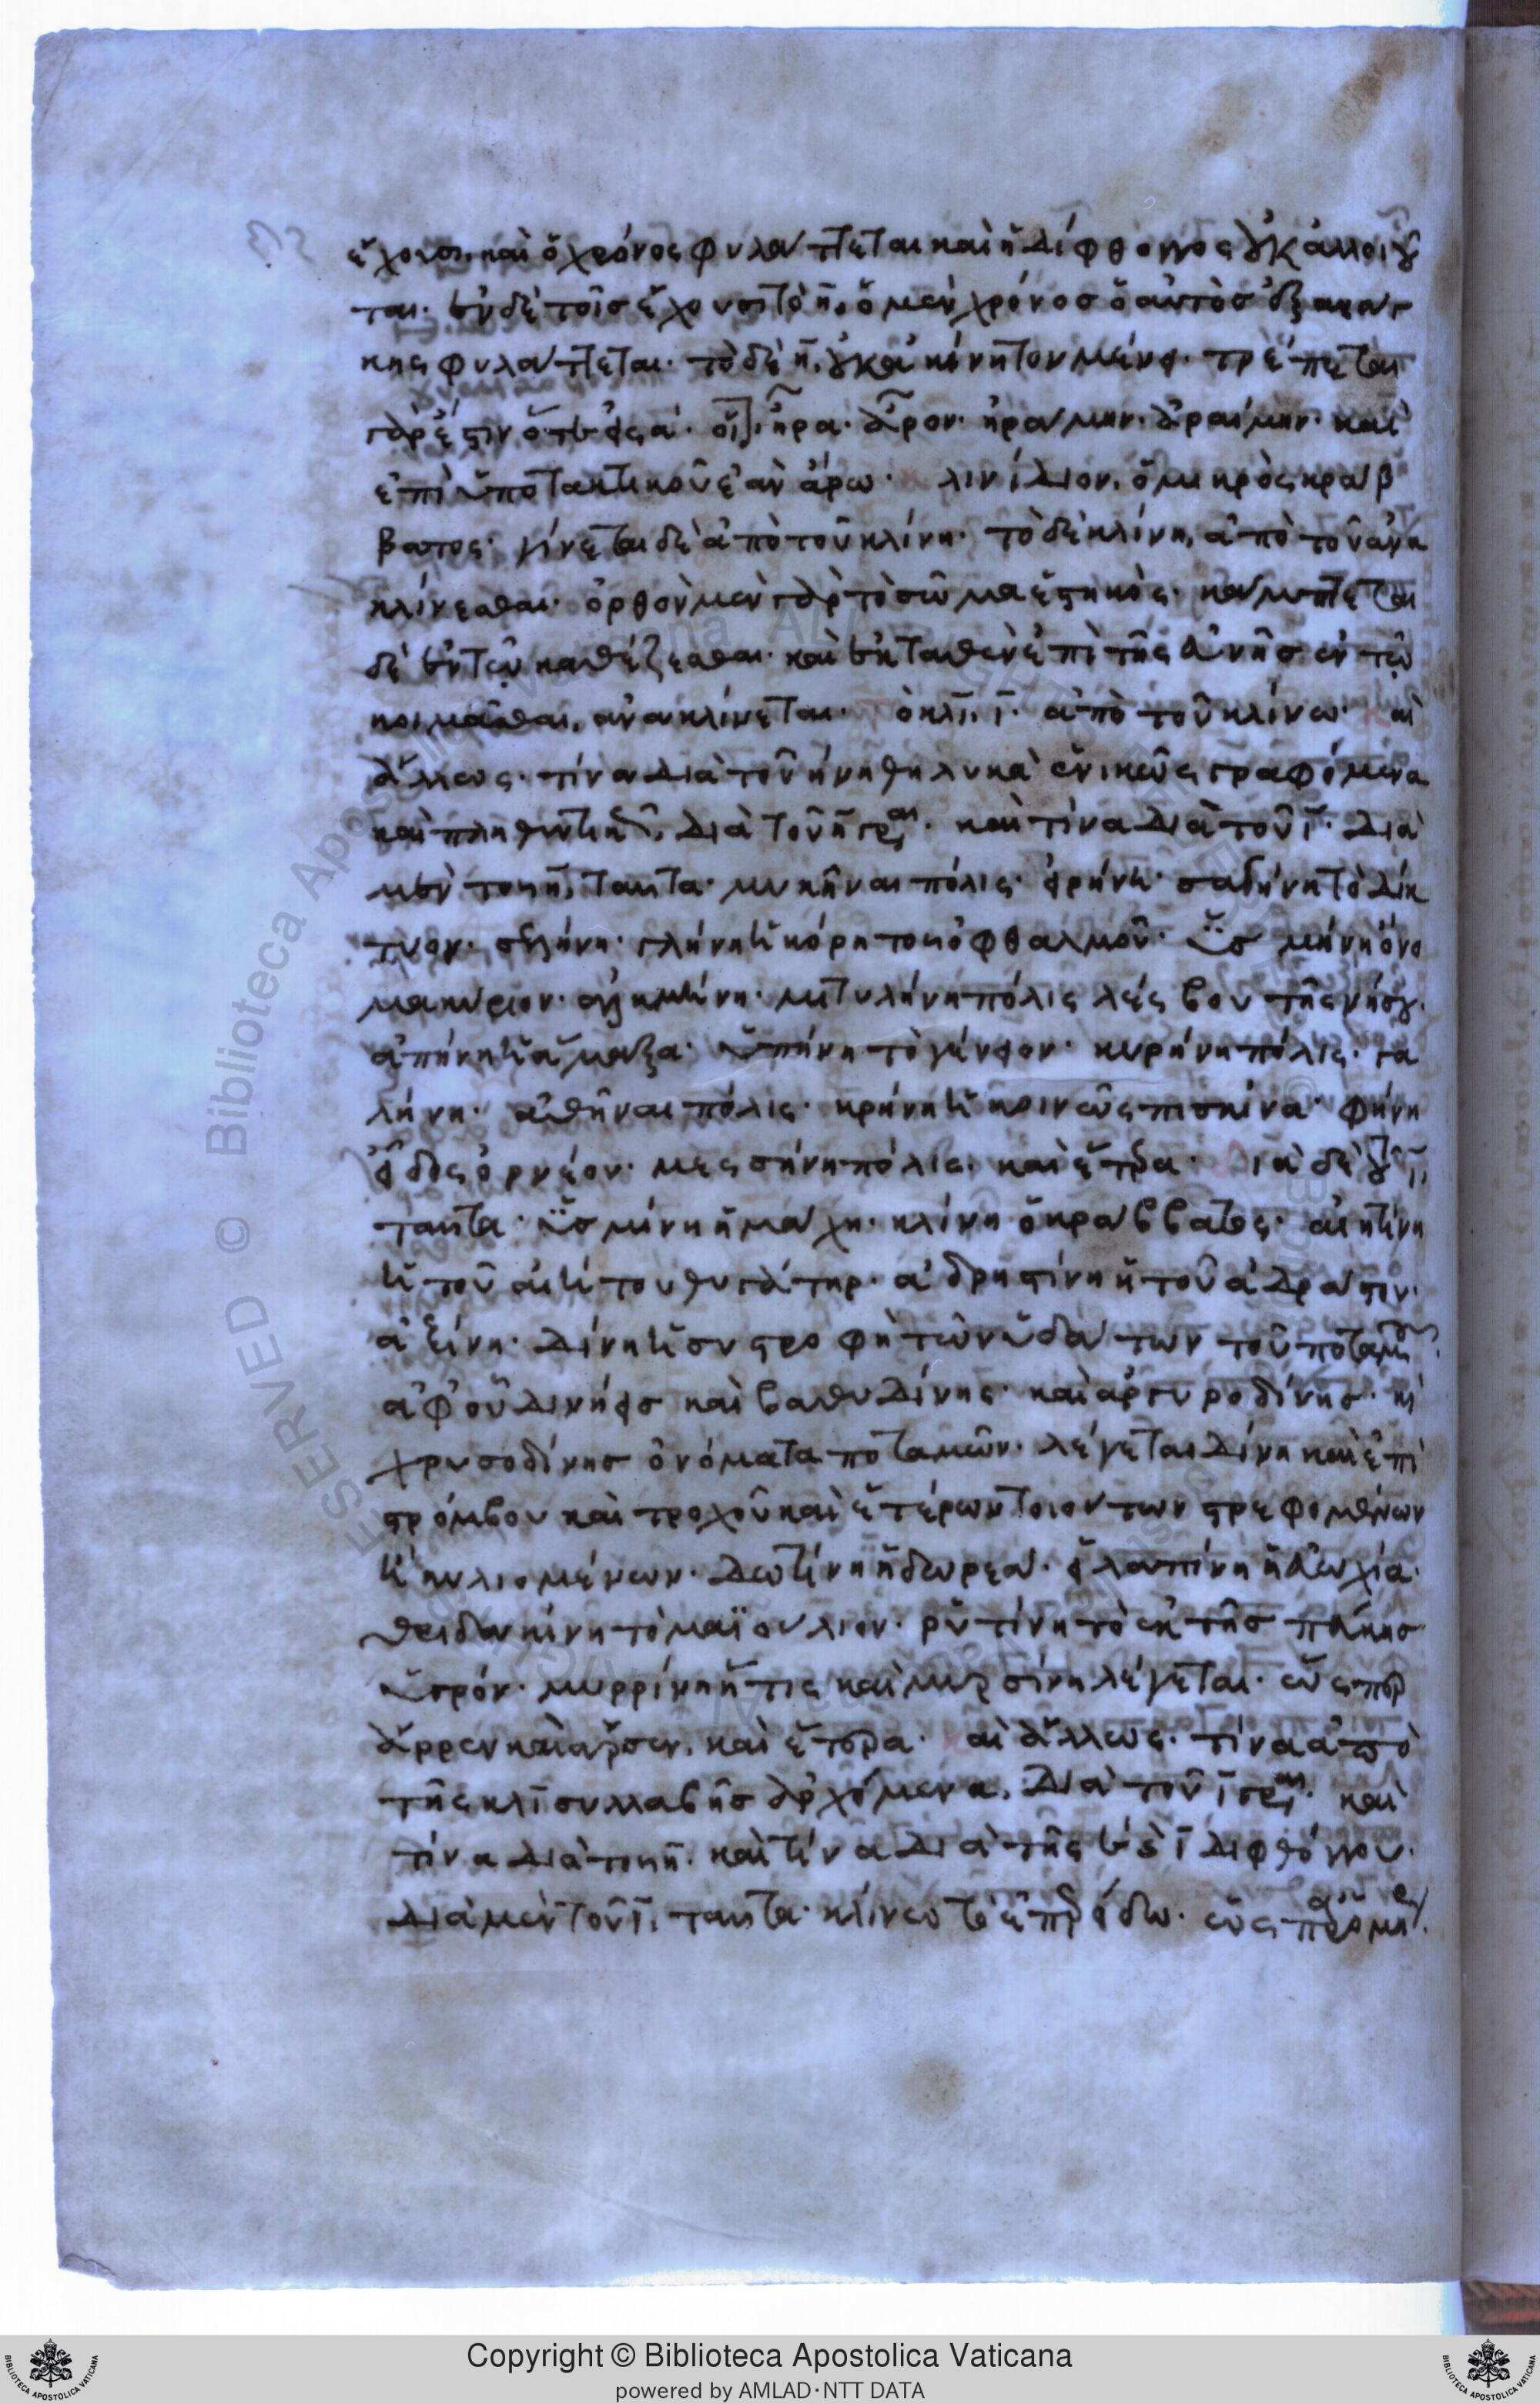 ἔχουσι, καὶ ὁ χρόνος φυλάττεται καὶ ἡ δίφθογγος οὐκ ἀλλοιοῦ
ται. ἐν δὲ τοῖς ἔχουσι τὸ η, ὁ μὲν χρόνος ὁ αὐτὸς ἐξ ἀνάγ
κης φυλάττεται. τὸ δὲ η, οὐκ ἀκίνητον μένει. τρέπεται
γάρ ἐστιν ὅτε εἰς α. οἷον ἦρα. ἆρον. ἠράμην. ἀραίμην. καὶ
ἐπὶ ὑποτακτικοῦ ἐὰν ἄρω. λινίδιον, ὁ μικρὸς κράβ
βατος. γίνεται δὲ ἀπὸ τοῦ κλίνη. τὸ δὲ κλίνη, ἀπὸ τοῦ ἀνα
κλίνεσθαι. ὀρθὸν μὲν γὰρ τὸ σῶμα ἑστηκὸς. κάμπτεται
δὲ ἐν τῷ καθέζεσθαι. καὶ ἐκταθὲν ἐπὶ τῆς εὐνῆς ἐν τῷ
κοιμᾶσθαι, ἀνακλίνεται. τὸ κλι, ι. ἀπὸ τοῦ κλίνω. καὶ
ἄλλως. τίνα διὰ τοῦ ηνη θηλυκὰ ἑνικῶς γραφόμενα
καὶ πληθυντικῶς, διὰ τοῦ η γράφεται. καὶ τίνα διὰ τοῦ ι. διὰ
μὲν του η, ταῦτα. μυκῆναι πόλις. εἰρήνη. σαγήνη τὸ δίκ
τυον. σελήνη. γλήνη ἡ κόρη του ὀφθαλμοῦ. ϋσμήνη ὄνο
μα κύριον. μιτυλήνη πόλις λέσβου τῆς νήσου.
ἀπήνη ἡ ἅμαξα. ὑπήνη τὸ γένειον. κυρήνη πόλις. γα
λήνη. ἀθῆναι πόλις. κρήνη ἡ κοινῶς πισκίνα. φήνη
εἶδος ὀρνέου. μεσσήνη πόλις. καὶ ἕτερα. διὰ δὲ τοῦ ι,
ταῦτα. ϋσμίνη ἡ μάχη. κλίνη ὁ κράββατος. αἰητίνη
ἡ τοῦ αἰήτου θυγάτηρ. ἀδρηστίνη ἡ τοῦ ἀδράστου.
ἀξίνη. δίνη ἡ συστροφὴ τῶν ὑδάτων τοῦ ποταμοῦ.
ἀφ’ οὗ δινήεις καὶ βαθυδίνης. καὶ ἀργυροδίνης. καὶ
χρυσοδίνης ὀνόματα ποταμῶν. λέγεται δίνη καὶ ἐπὶ
στρόμβου καὶ τροχοῦ καὶ ἑτέρων τοιούτων στρεφομένων
ἢ κυλιομένων. δωτίνη ἡ δωρεά. εἰλαπίνη ἡ εὐωχία.
ῥητίνη τὸ ἐκ τῆς πεύκης
ὑγρόν. μυρρίνη ἥτις καὶ μυρσίνη λέγεται. ὥσπερ
ἄρρεν καὶ ἄρσεν, καὶ ἕτερα. καὶ ἄλλως. τίνα ἀπὸ
τῆς κλι συλλαβῆς ἀρχόμενα, διὰ τοῦ ι γράφεται. καὶ
τίνα διὰ του η. καὶ τίνα διὰ τῆς ει διφθόγγου.
διὰ μὲν τοῦ ι, ταῦτα. κλίνω τὸ ἐπερείδω.